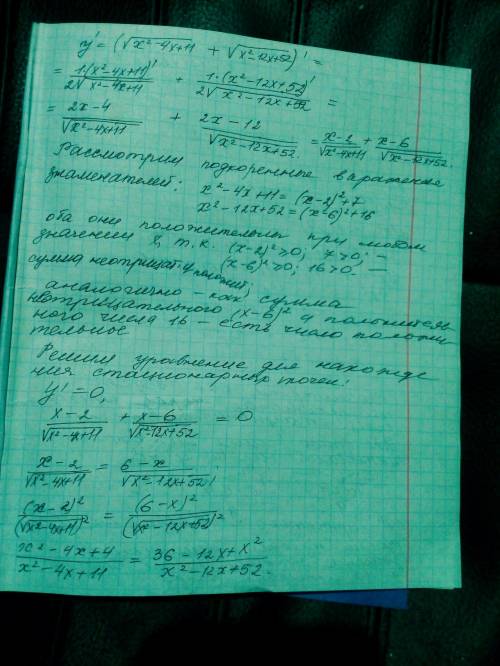 y' = (√x²-4x+11 + √x²-12x+52)' =
= 1·(x²-4x+11)' / 2√x²-4x+11 + 1·(x²-12x+52)' / 2√x²-12x+52 =
= 2x-4 / √x²-4x+11 + 2x-12 / √x²-12x+52 = x-2 / √x²-4x+11 + x-6 / √x²-12x+52.
Рассмотрим подкоренные выражение
знаменателей:
x²-4x+11=(x-2)²+7
x²-12x+52=(x-6)²+16
оба они положительны при любом
значении х, т.к. (x-2)²≥0; 7>0; -
сумма неотрицат. и полож.; (x-6)²≥0; 16>0. -
аналогично - как сумма
неотрицательного (x-6)² и положитель
ного числа 16 - есть число положи
тельное
Решим уравнение для нахожде
ния стационарных точек:
y'=0,
x-2 / √x²-4x+11 + x-6 / √x²-12x+52 = 0
x-2 / √x²-4x+11 = 6-x / √x²-12x+52;
(x-2)² / (√x²-4x+11)² = (6-x)² / (√x²-12x+52)²
x²-4x+4 / x²-4x+11 = 36-12x+x² / x²-12x+52.